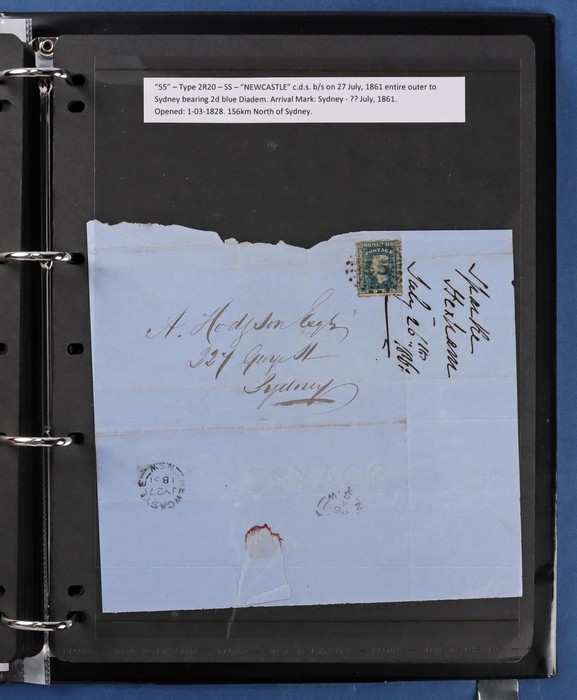 "55" – Type 2R20 – SS – "NEWCASTLE" c.d.s. b/s on 27 July, 1861 entire outer to
Sydney bearing 2d blue Diadem. Arrival Mark: Sydney - ?? July, 1861.
Opened: 1-03-1828. 156km North of Sydney.
POSTAGE
A. Hodgson Esqr
227 
Sydney
Hexham
July 26
NEWCASTLE
JY 27
1861
N.S.W